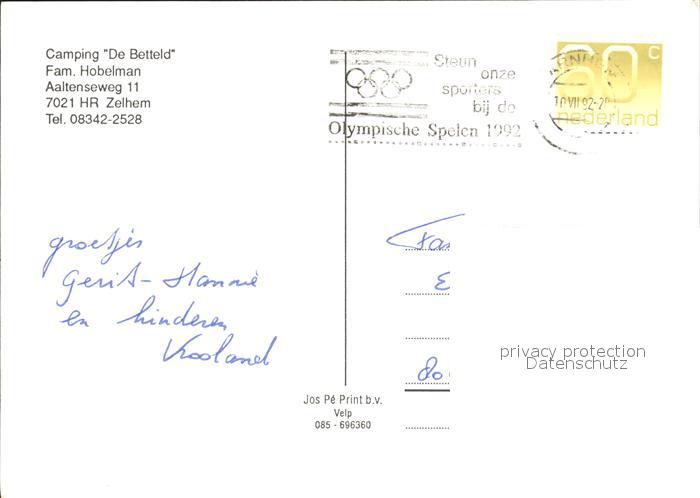 Camping "De Betteld"
Fam. Hobelman
Aaltenseweg 11
7021 HR Zelhem
Tel. 08342-2528
Steun
onze
sporters
bij de
Olympische Spelen 1992
ARNHEM
10 VII 92-20
60 c
nederland
groetjes
Gerit- Hannie
en kinderen
Vrooland
Fa
E
do
privacy protection
Datenschutz
Jos Pé Print b.v.
Velp
085 - 696360